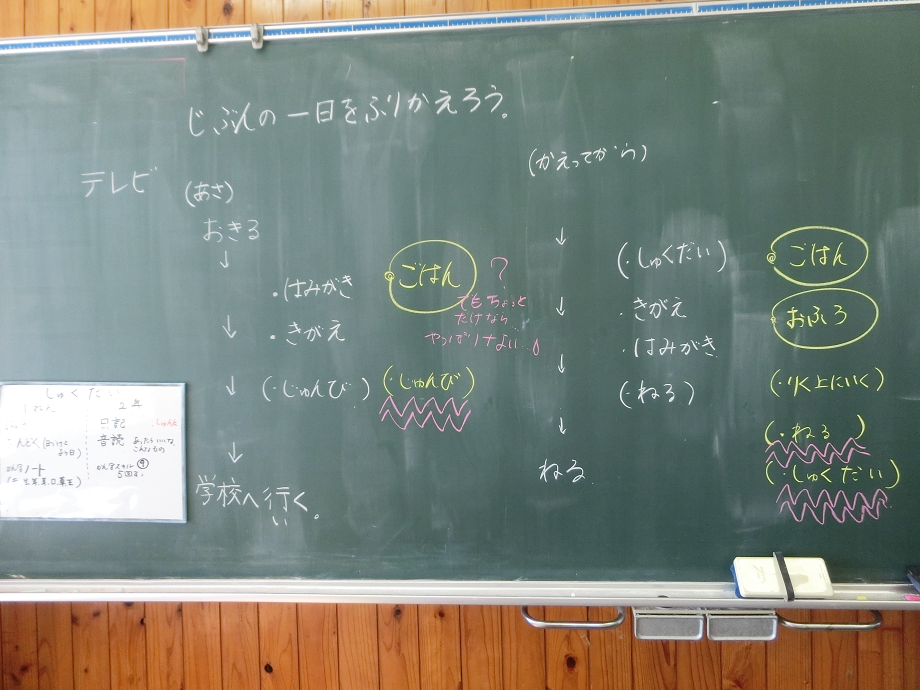 じぶんの一日をふりかえろう。
テレビ
(あさ)
おきる
↓
・はみがき
↓
・きがえ
↓
(・じゅんび)
↓
学校へ行く。
い
ごはん
?
でもちょっと
だけなら…
やっぱりナない…
(・じゅんび)
(かえってから)
↓
(・しゅくだい)
↓
・きがえ
・はみがき
↓
(・ねる)
↓
ねる
ごはん
おふろ
(・りく上にいく)
(・ねる)
(・しゅくだい)
しゅくだい
2年
日記
音読
あったらいいな
こんなもの
5回